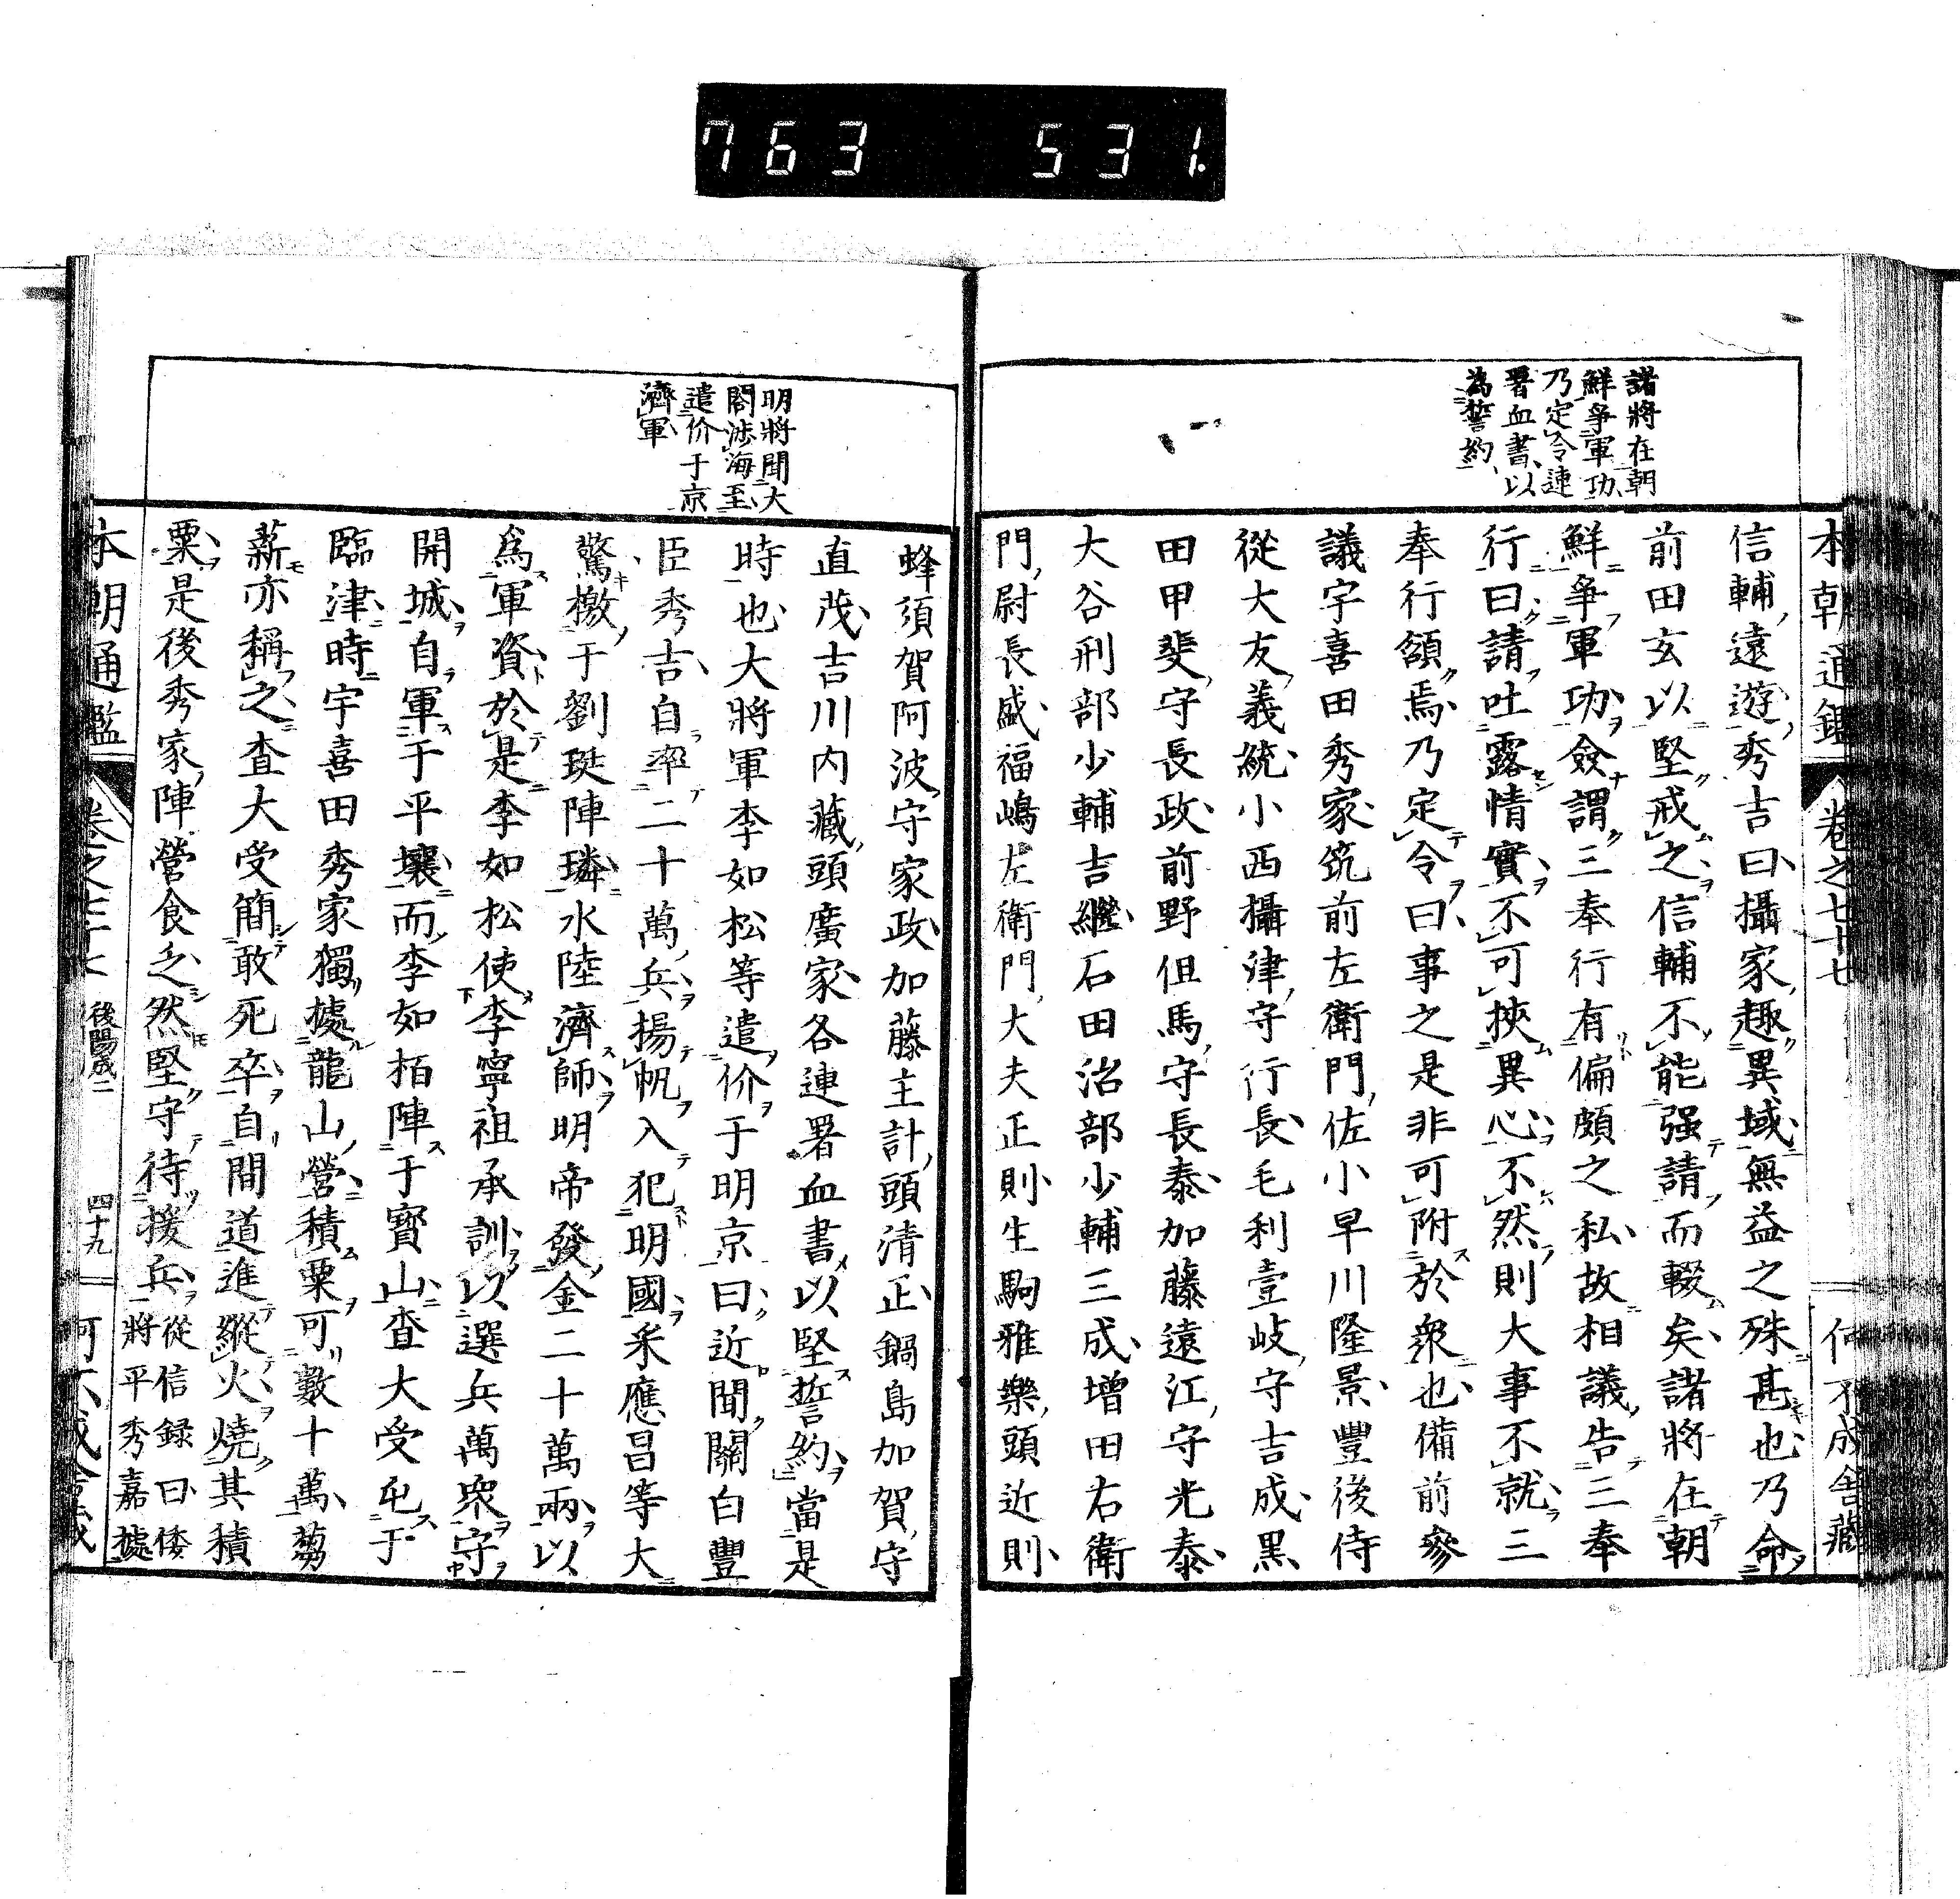 763 531.
諸將在朝
鮮爭軍功
乃定令連
署血書以
為誓約
本朝通鑑 卷之七十七
何不成舍藏
信輔遠遊秀吉曰攝家趣異域無益之殊甚也乃命
前田玄以堅戒之信輔不能强請而輟矣諸將在朝
鮮爭軍功僉謂三奉行有偏頗之私故相議告三奉
行曰請吐露情實不可挾異心不然則大事不就三
奉行頷焉乃定令曰事之是非可附於衆也備前參
議宇喜田秀家筑前左衛門佐小早川隆景豐後侍
從大友義統小西攝津守行長毛利壹岐守吉成黒
田甲斐守長政前野但馬守長泰加藤遠江守光泰
大谷刑部少輔吉繼石田治部少輔三成増田右衛
門尉長盛福嶋左衛門大夫正則生駒雅樂頭近則
明將聞大
閤渉海至
遣价于京
濟軍
蜂須賀阿波守家政加藤主計頭清正鍋島加賀守
直茂吉川内藏頭廣家各連署血書以堅誓約當是
時也大將軍李如松等遣价于明京曰近聞關白豐
臣秀吉自率二十萬兵揚帆入犯明國宋應昌等大
驚檄于劉珽陣璘水陸濟師明帝發金二十萬兩以
爲軍資於是李如松使李寧祖承訓以選兵萬衆守
開城自軍于平壤而李如栢陣于寳山査大受屯于
臨津時宇喜田秀家獨據龍山營積粟可數十萬蒭
薪亦稱之査大受簡敢死卒自間道進縱火燒其積
粟是後秀家陣營食乏然堅守待援兵從信録曰倭
將平秀嘉據
本朝通鑑 卷之七十七 後陽成二 四十九